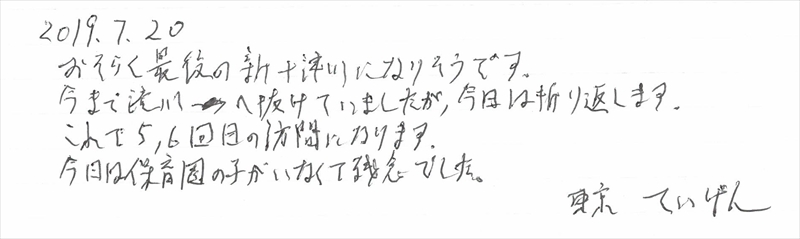 2019.7.20
おそらく最後の新十津川になりそうです。
今まで滝川へ抜けていましたが,今日は折り返します.
これで5,6回目の訪問になります.
今日は保育園の子がいなくて残念でした。
東京 ていげん